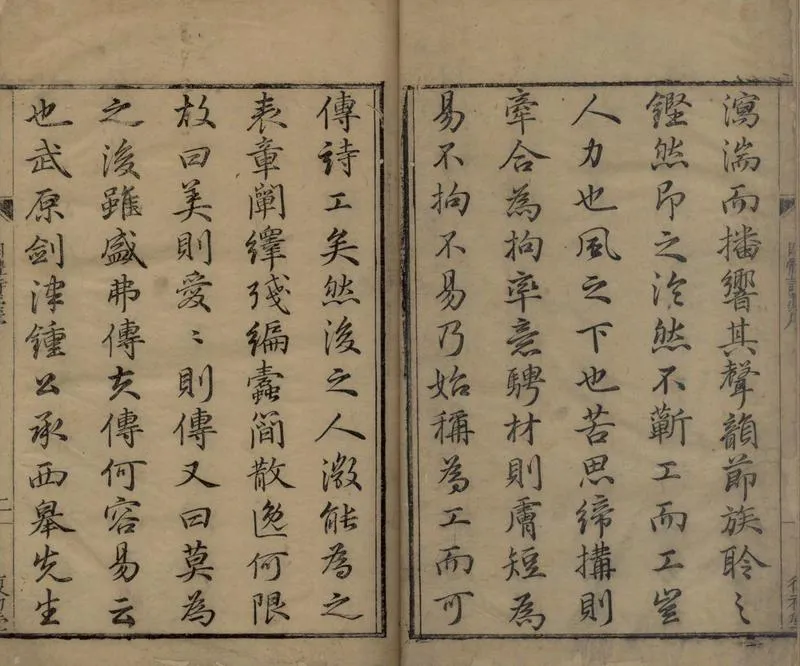 瀉湍而播響其聲韻節族聆之
鏗然即之泠然不蘄工而工豈
人力也風之下也苦思締搆則
牽合為拘率意騁材則膚短為
易不拘不易乃始稱為工而可
傳詩工矣然後之人微能為之
表章闡繹殘編蠹簡散逸何限
故曰美則愛〻則傳又曰莫為
之後雖盛弗傳夫傳何容易云
也武原劍津鍾公承西皋先生